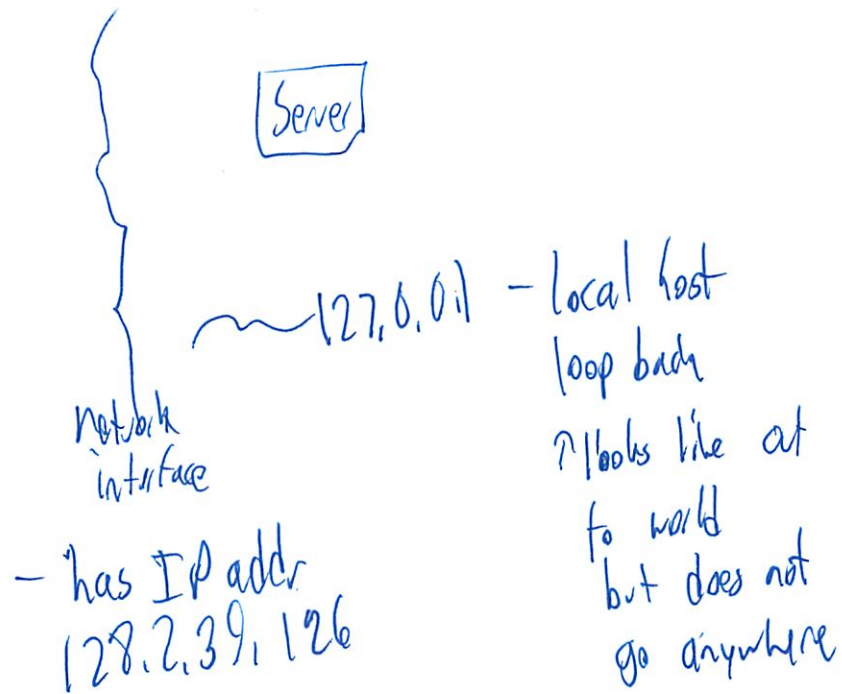 Server
127.0.0.1 - local host
loop back
↑ looks like out
to world
but does not
go anywhere
network
interface
- has IP addr
128.2.39.126